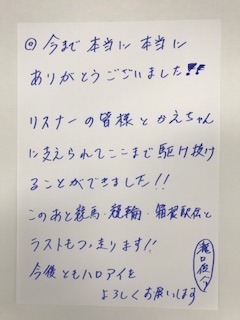 ◎ 今まで 本当に 本当に
ありがとうございました!!
リスナーの皆様とかえちゃん
に支えられてここまで駆け抜け
ることができました!!
このあと競馬・競輪・箱根駅伝と
ラストもつっ走ります!!
今後ともハロアイを
よろしくお願いします